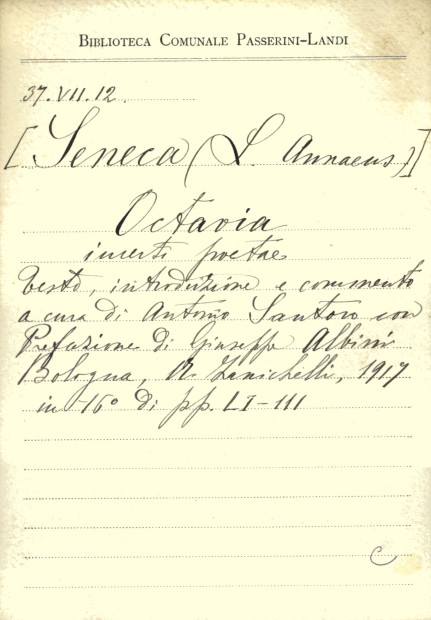 BIBLIOTECA COMUNALE PASSERINI-LANDI
37.VII.12.
[Seneca (L. Annaeus)]
Octavia
incerti poetae
Testo, introduzione e commento
a cura di Antonio Santoro con
Prefazione di Giuseppe Albini
Bologna, N. Zanichelli, 1917
in -16° di pp. LI-111
C